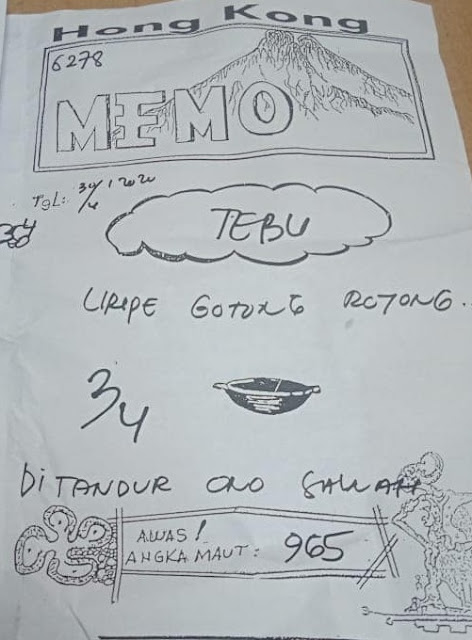 Hong Kong
6278
MEMO
TgL:
TEBU
LIRIPE GOTONG ROTONG.
3/4
DITANDUR ONO SAWAH
AWAS!
ANGKA MAUT: 965